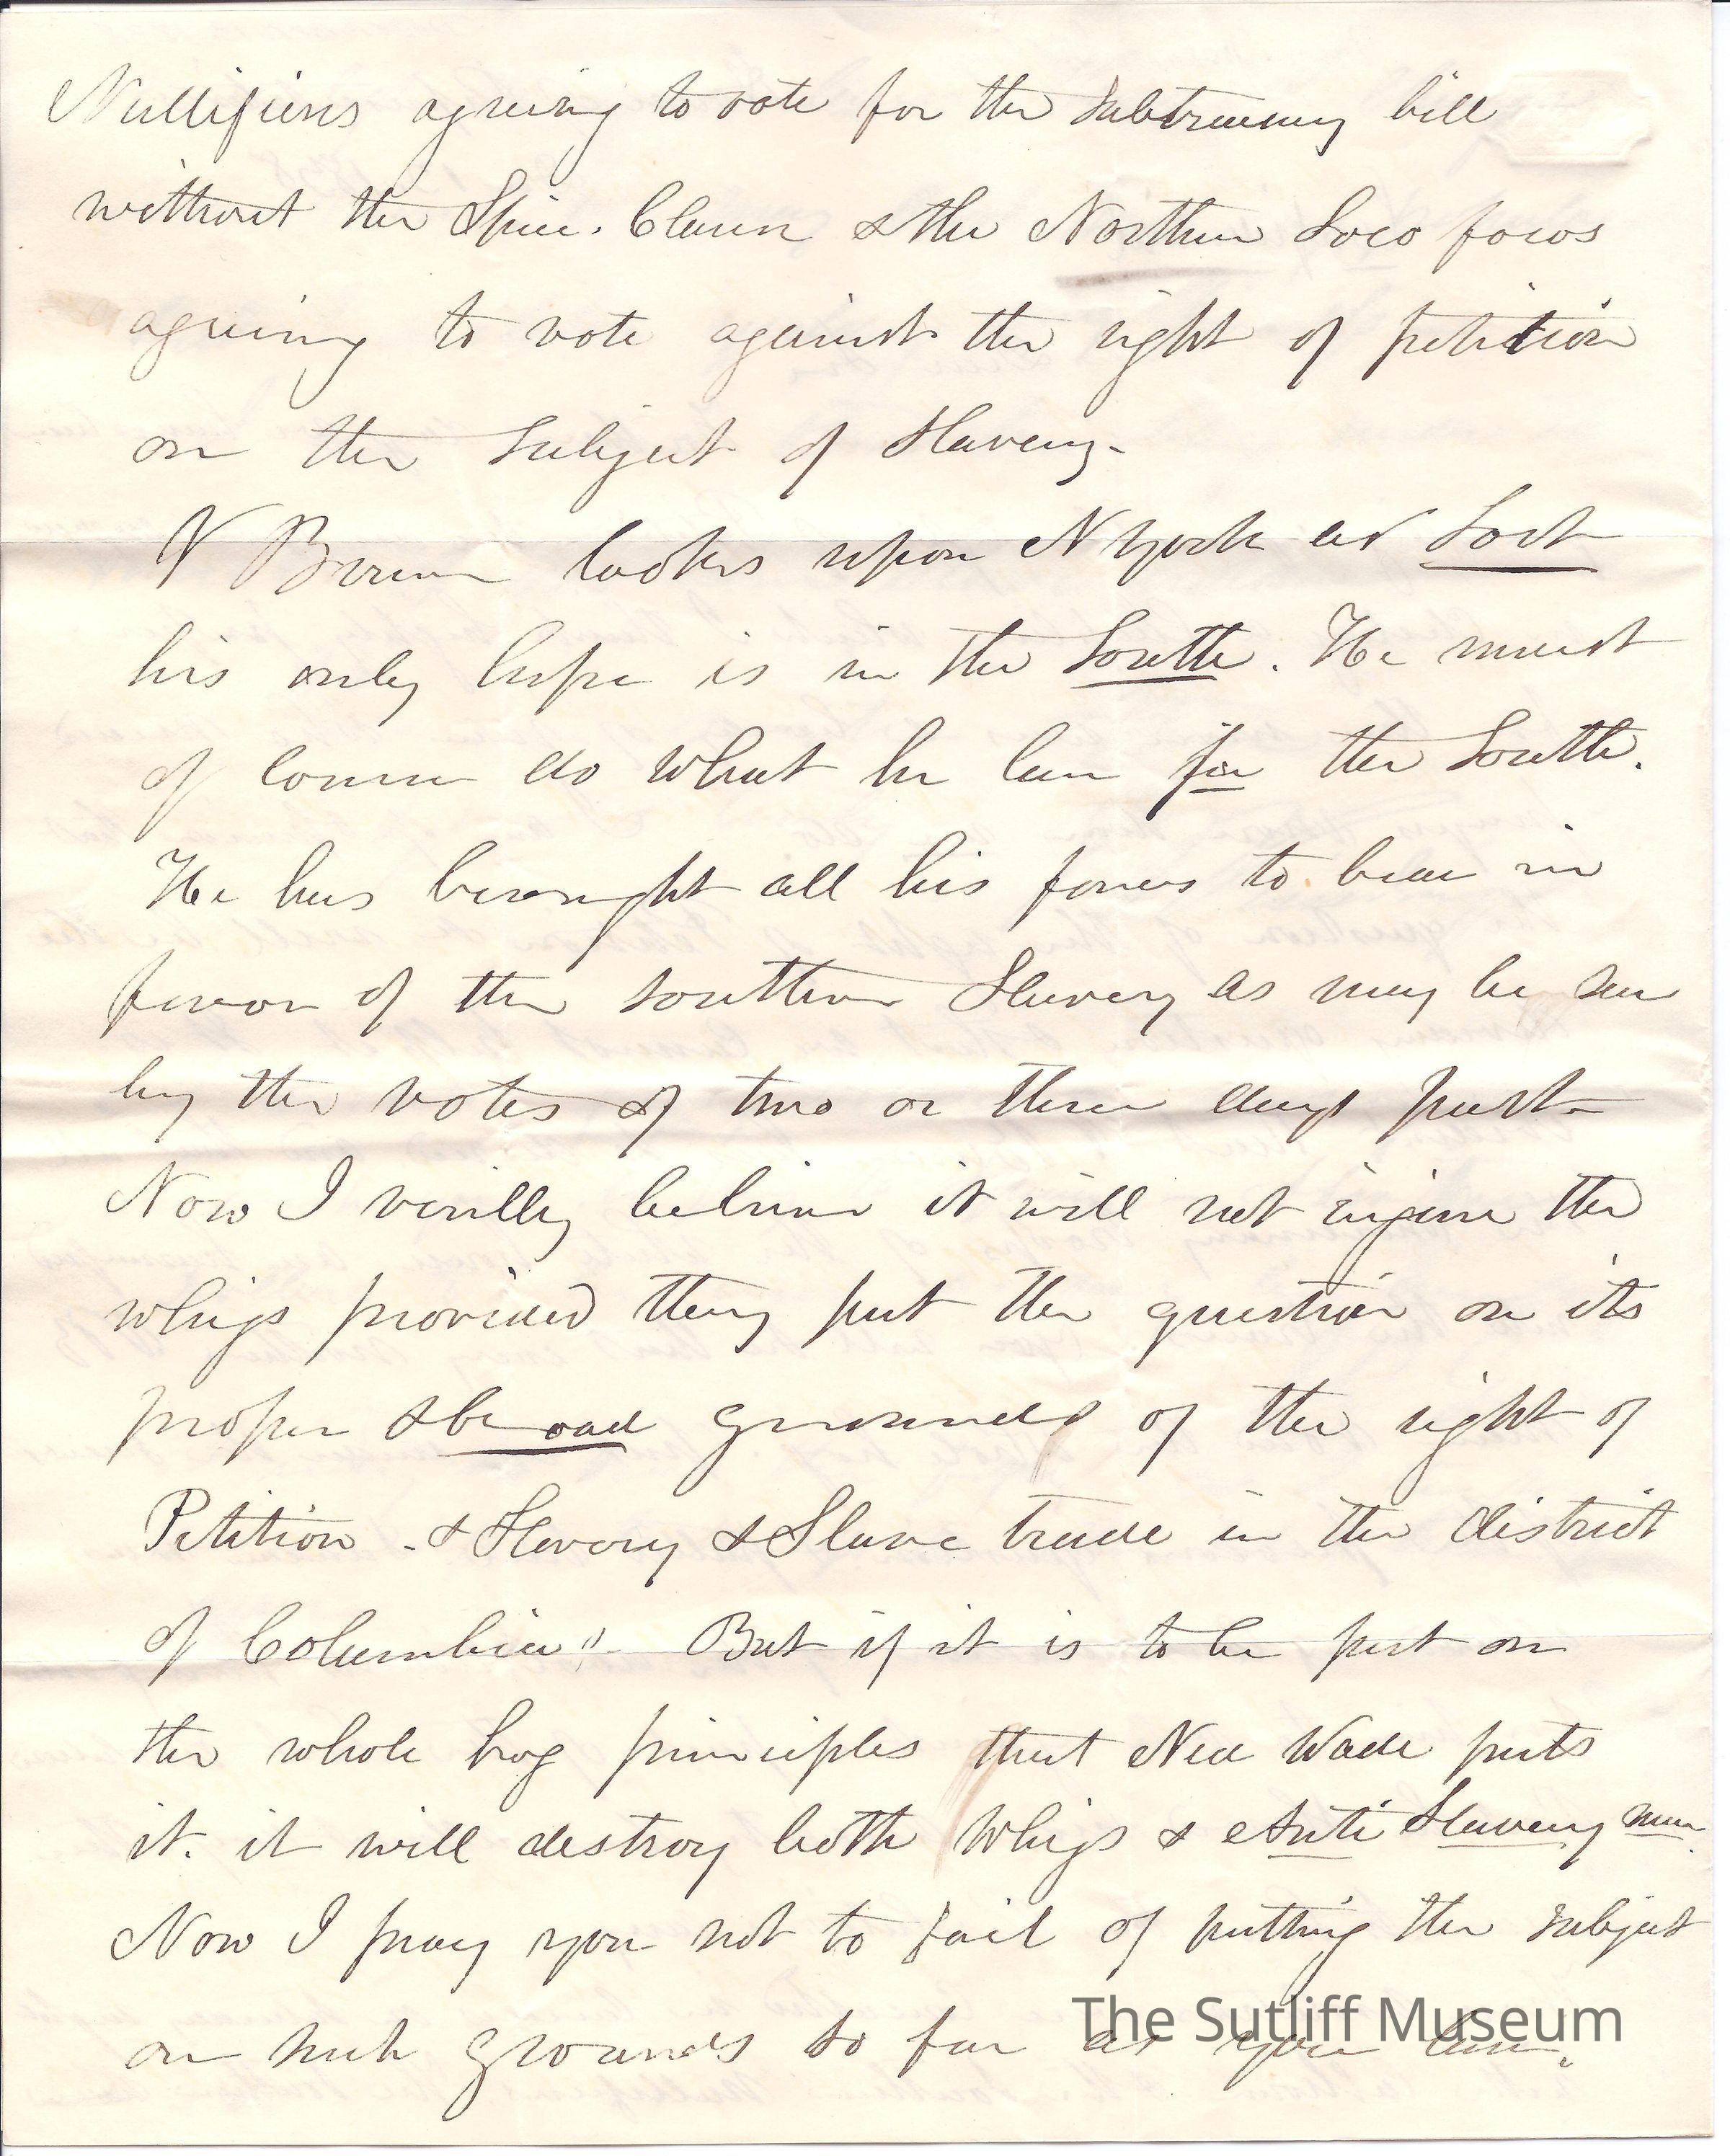 Nullifiers agreeing to vote for the subtreasury bill
without the Spcie. Clause & the Northern Loco focos
agreeing to vote against the right of petition
on the subject of Slavery.
V Buren lookes upon N York as Lost
his only hope is in the South. He must
of course do what he can for the South.
He has brought all his forces to bear in
favor of the southern Slavery as may be seen
by the votes of two or three days past
Now I verilly believe it will not injure the
whigs provided they put the question on its
proper & broad grounds of the right of
Petition - & Slavery & Slave trade in the district
of Columbia". But if it is to be put on
the whole hog principles that Ned Wade puts
it. it will destroy both Whigs & Anti Slavery men.
Now I pray you not to fail of putting the subject
on such grounds so far as you can.
The Sutliff Museum